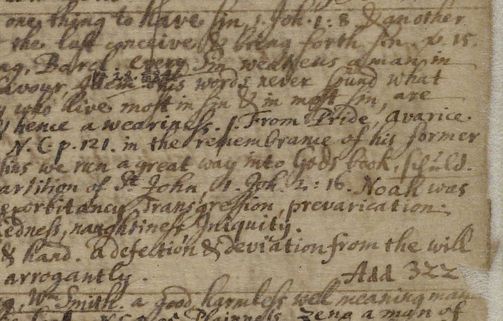 one thing to have sin, 1. Joh. 1: 8 & another
the lust conceive & bring forth sin, v. 15.
Bard. every Sin weakens a man in
them this words never sound what
who live most in sin & in most sin, are
hence a weariness. From Pride, Avarice.
N. C. p. 121. in the remembrance of his former
we run a great way into Gods book. should.
of St John, 1. Joh. 2: 16. Noah was
exorbitancy Transgression, prevarication.
naughtiness Iniquity.
& hand. a defection & deviation from the will
arrogantly. Add 322
Wm Smith. a good, harmless well meaning man
Plainness. a man of